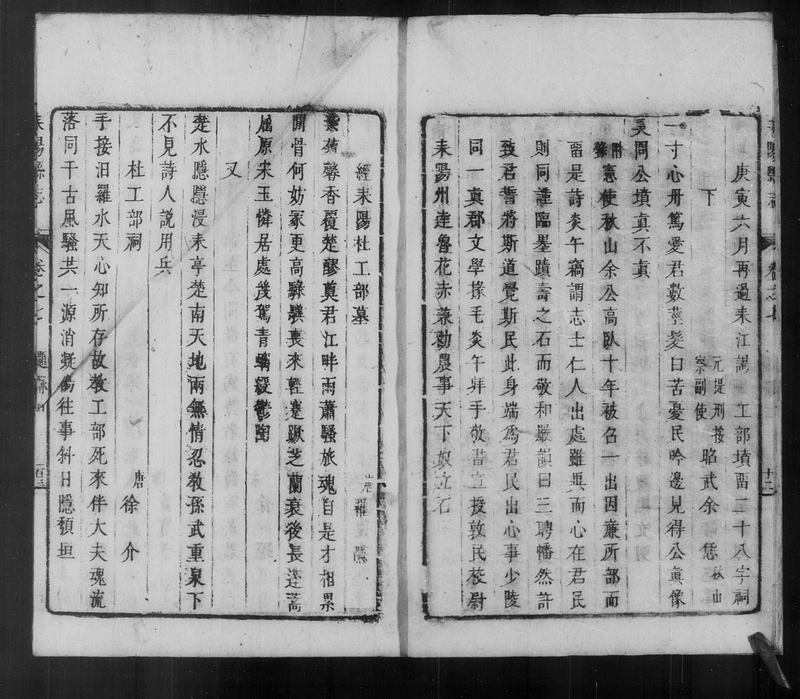 庚寅六月再過耒江謁 工部墳留二十八字祠
下
元提刑按
察副使
昭武余 恁
秋山
一寸心丹篤愛君數莖髮白苦憂民吟邊見得公眞像
莫問公墳真不眞
附憲使秋山余公高臥十年被召一出因廉所部而
留是詩炎午竊謂志士仁人出處雖異而心在君民
則同謹臨墨蹟壽之石而敬和嚴韻曰三聘幡然許
致君誓將斯道覺斯民此身端爲君民出心事少陵
同一真郡文學掾毛炎午拜手敬書立授敦民校尉
耒陽州達魯花赤兼勸農事天下奴立石
經耒陽杜工部墓
羅隱
紫菊馨香覆楚醪奠君江畔雨蕭騷旅魂自是才相累
閒骨何妨冢更高騄驥喪來輕蹇蹶芝蘭衰後長蓬蒿
屈原宋玉憐居處幾駕青螭緩鬱陶
又
楚水隱隱浸耒亭楚南天地兩無情忍教孫武重泉下
不見詩人說用兵
杜工部祠
唐 徐 介
手接汨羅水天心知所存故教工部死來伴大夫魂流
落同千古風騷共一源消凝傷往事斜日隱頹垣
耒陽縣志
卷之七